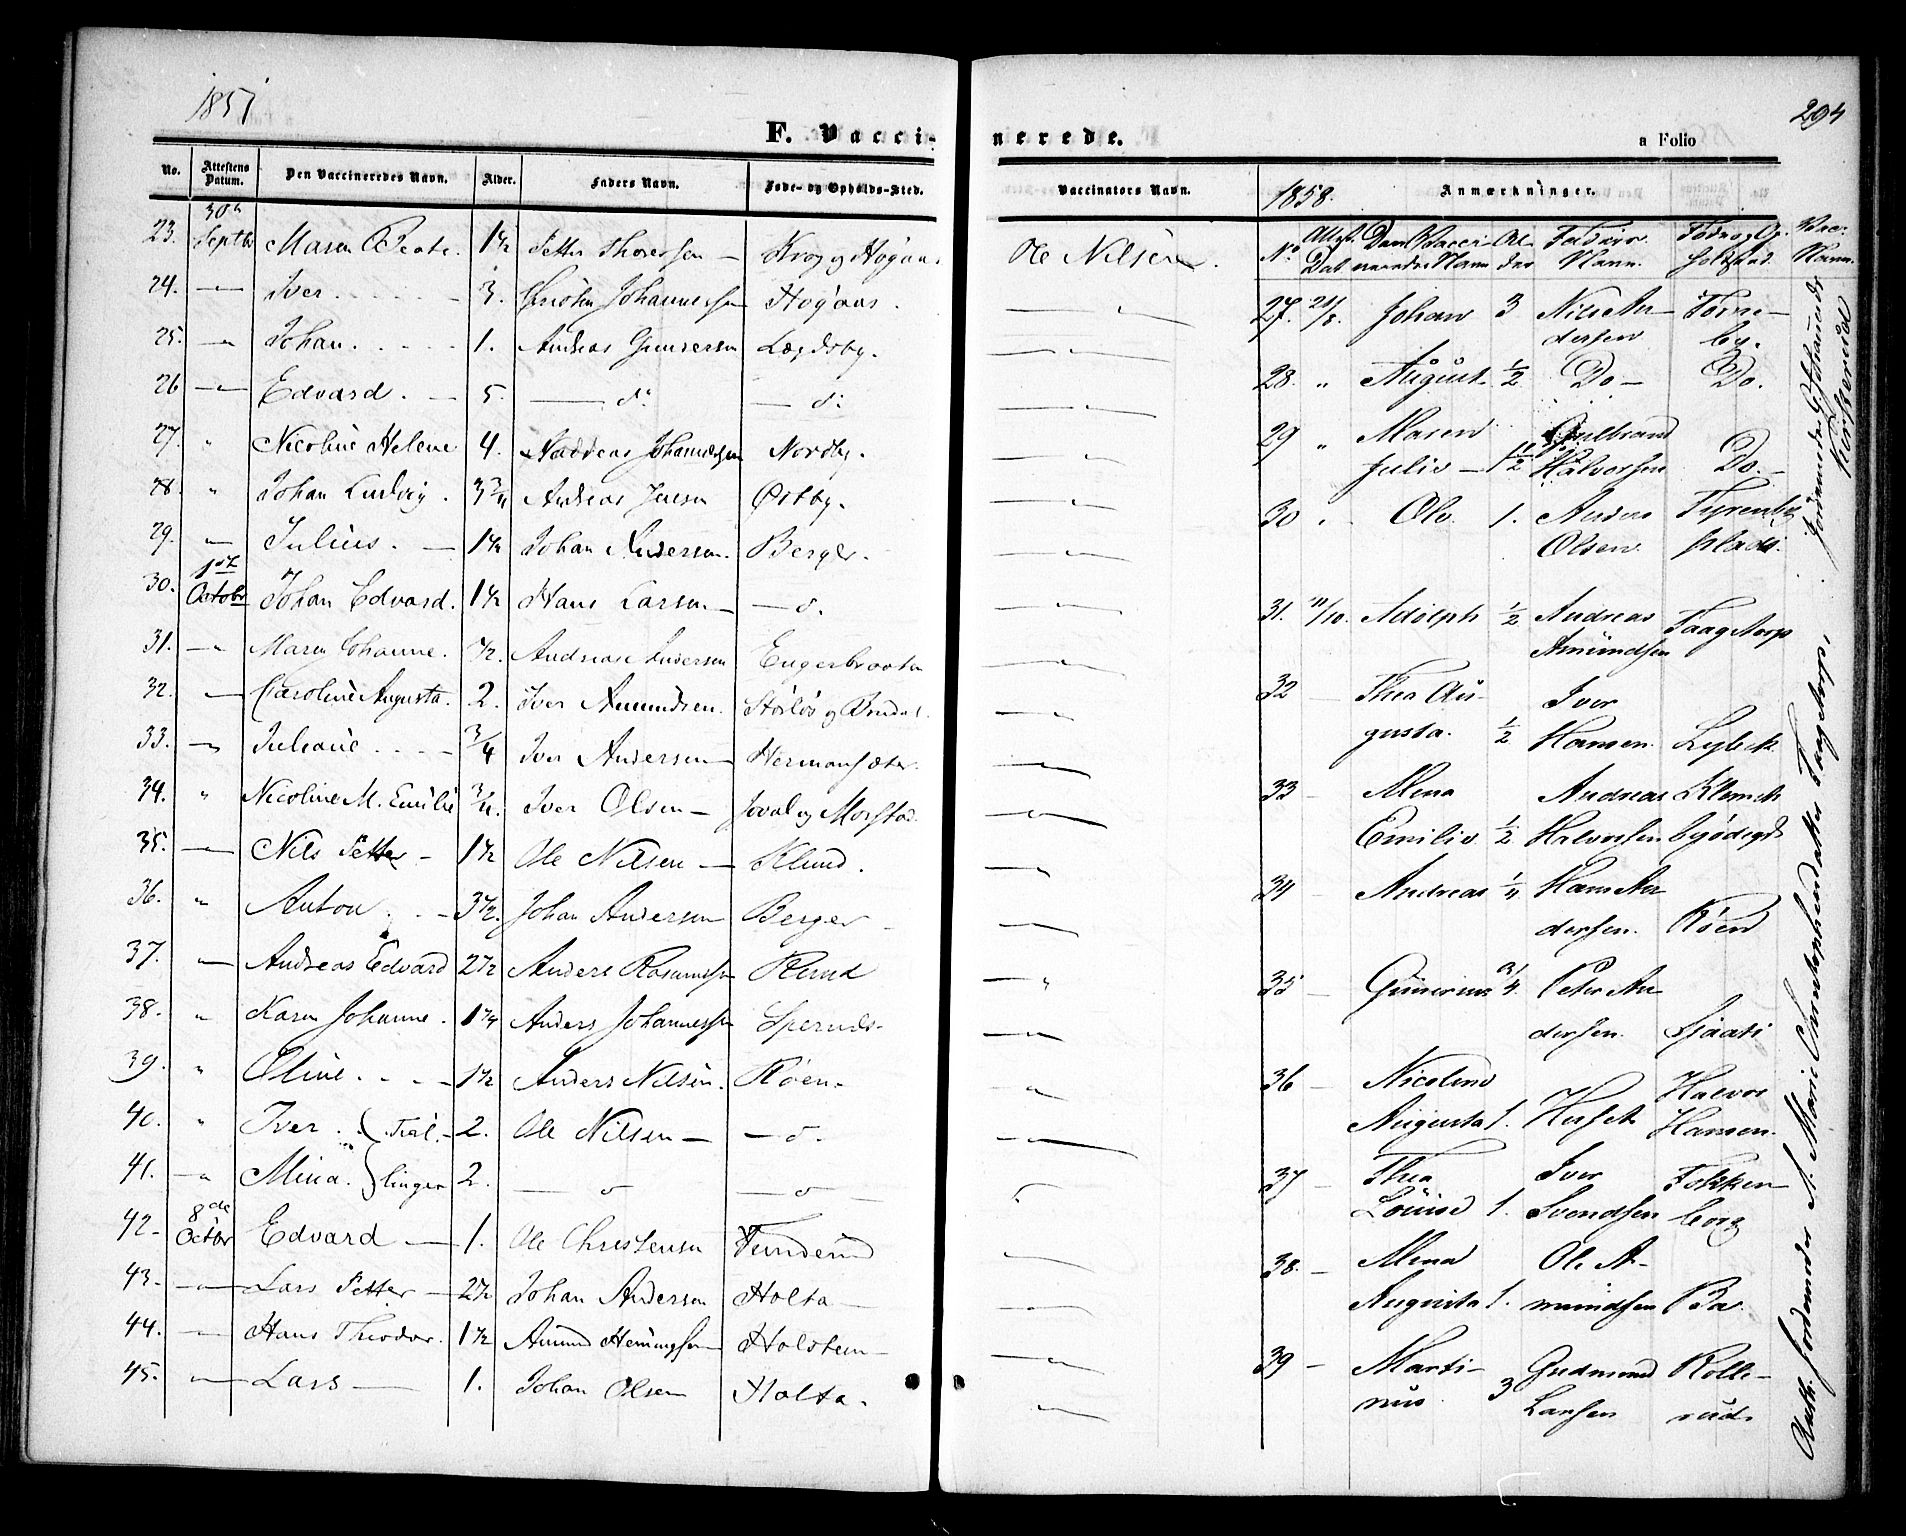 1857
F. Vacci-
No. Attestens Datum. Den Vaccineredes Navn. Alder. Faders Navn. Føde- og Opholds-Sted.
23. 30te Septbr Maren Beate. 1½ Petter Thoresen — Krog og Høgaas
24. — Iver. 3. Johannessen Høgaas.
25. — Johan. 1. Andreas Gundersen Lægdsby.
26 — Edvard. — 5. — do — do
27. " Nicoline Helene 4. Johannesen Nordby.
28. " Johan Ludvig. 3¾ Andreas Jensen Østby.
29. — Julius. — 1½ Johan Andersen. Berger.
30. 1ste Octobr Johan Edvard. 1½ Hans Larsen — — do.
31. — Maren Johanne. ½. Andreas Andersen Engerbraaten
32. — Caroline Augusta. 2. Iver Amundsen.
33. — Juliane ¾ Iver Andersen — Hermansæter.
34. " Nicoline M. Emilie ¾. Iver Olsen — Joval og Morstad.
35. — Nils Petter — 1½ Ole Nilsen — Klund.
36. " Anton. 3½. Johan Andersen Berger
37. — Andreas Edvard 2½ Anders Rasmussen Klund
38. " Karen Johanne. 1¼ Anders Johannessen
39. " Oline. 1½ Anders Nilsen. Røen.
40. " Iver. } Tvil- 2. Ole Nilsen — — do.
41. — Mina. } linger 2. — do — do —
42. 8de Octbr Edvard — 1. Ole Christensen
43. — Lars Petter — 2½ Johan Andersen Holta —
44. — Hans Theodor. 1½ Amund Hemingsen Holstein —
45. — Lars — 1. Johan Olsen Holta.
294
nerede.
a Folio
Vaccinators Navn. 1858. Anmærkninger.
Ole Nilsen.
No Attest. Dat Den Vacci-neredes Navn Al-der Faders Navn. Føde og Op-holdssted. Vac. Navn.
27. 21/8. Johan 3 Nils An-
dersen Tørne-
by.
28. " August ½ Do — Do.
29 " Maren Gulbrand
Julie — 1½ Halvorsen Do. —
30 " Ole. 1. Anders
Olsen
31. 11/10. Adolph ½ Andreas Faagstorp
Amundsen
32 — Thea Au- Iver
gusta. ½ Hansen. Lybeck
33 — Mina Andreas
Emilie ½ Halvorsen
34 — Andreas ¼ Hans An
dersen. Røen
35 — Gunerius ¾. Peter An
dersen.
36 — Nicoline Halvor
Augusta 1. Hansen.
37 — Thea Iver Fokken
Louise 1. Svendsen borg
38. — Mina Ole A-
Augusta 1. mundsen
39 — Marti- Gudmund Kolle-
nus 3 Larsen rud.
Jordemoder Marie Christophersdatter Faagstorp,
Jordemoder G. Johansdr